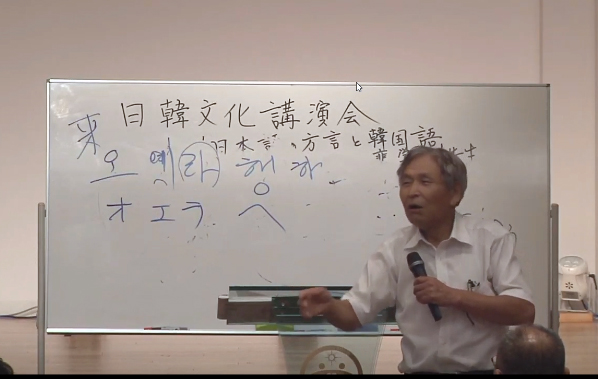 日韓文化講演会
日本語の方言と韓国語
来 오 예 라 해 하
オ エ ラ へ